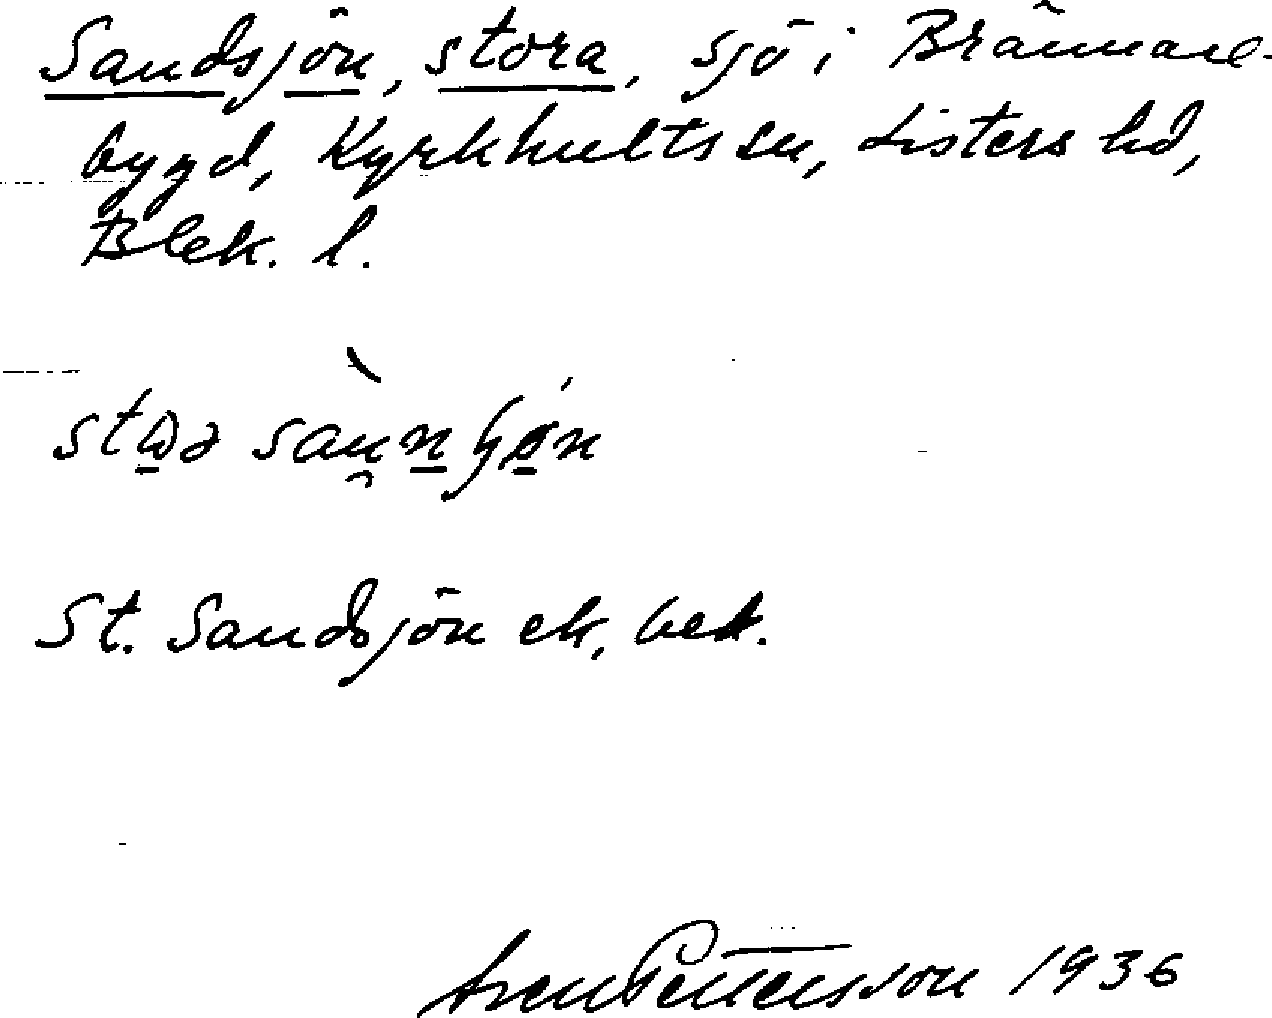 Sandsjön, stora, sjö i Brännare-
bygd, Kyrkhults sn, Listers hd,
Blek. l.
St. Sandsjön ek,
Sven Pettersson 1936